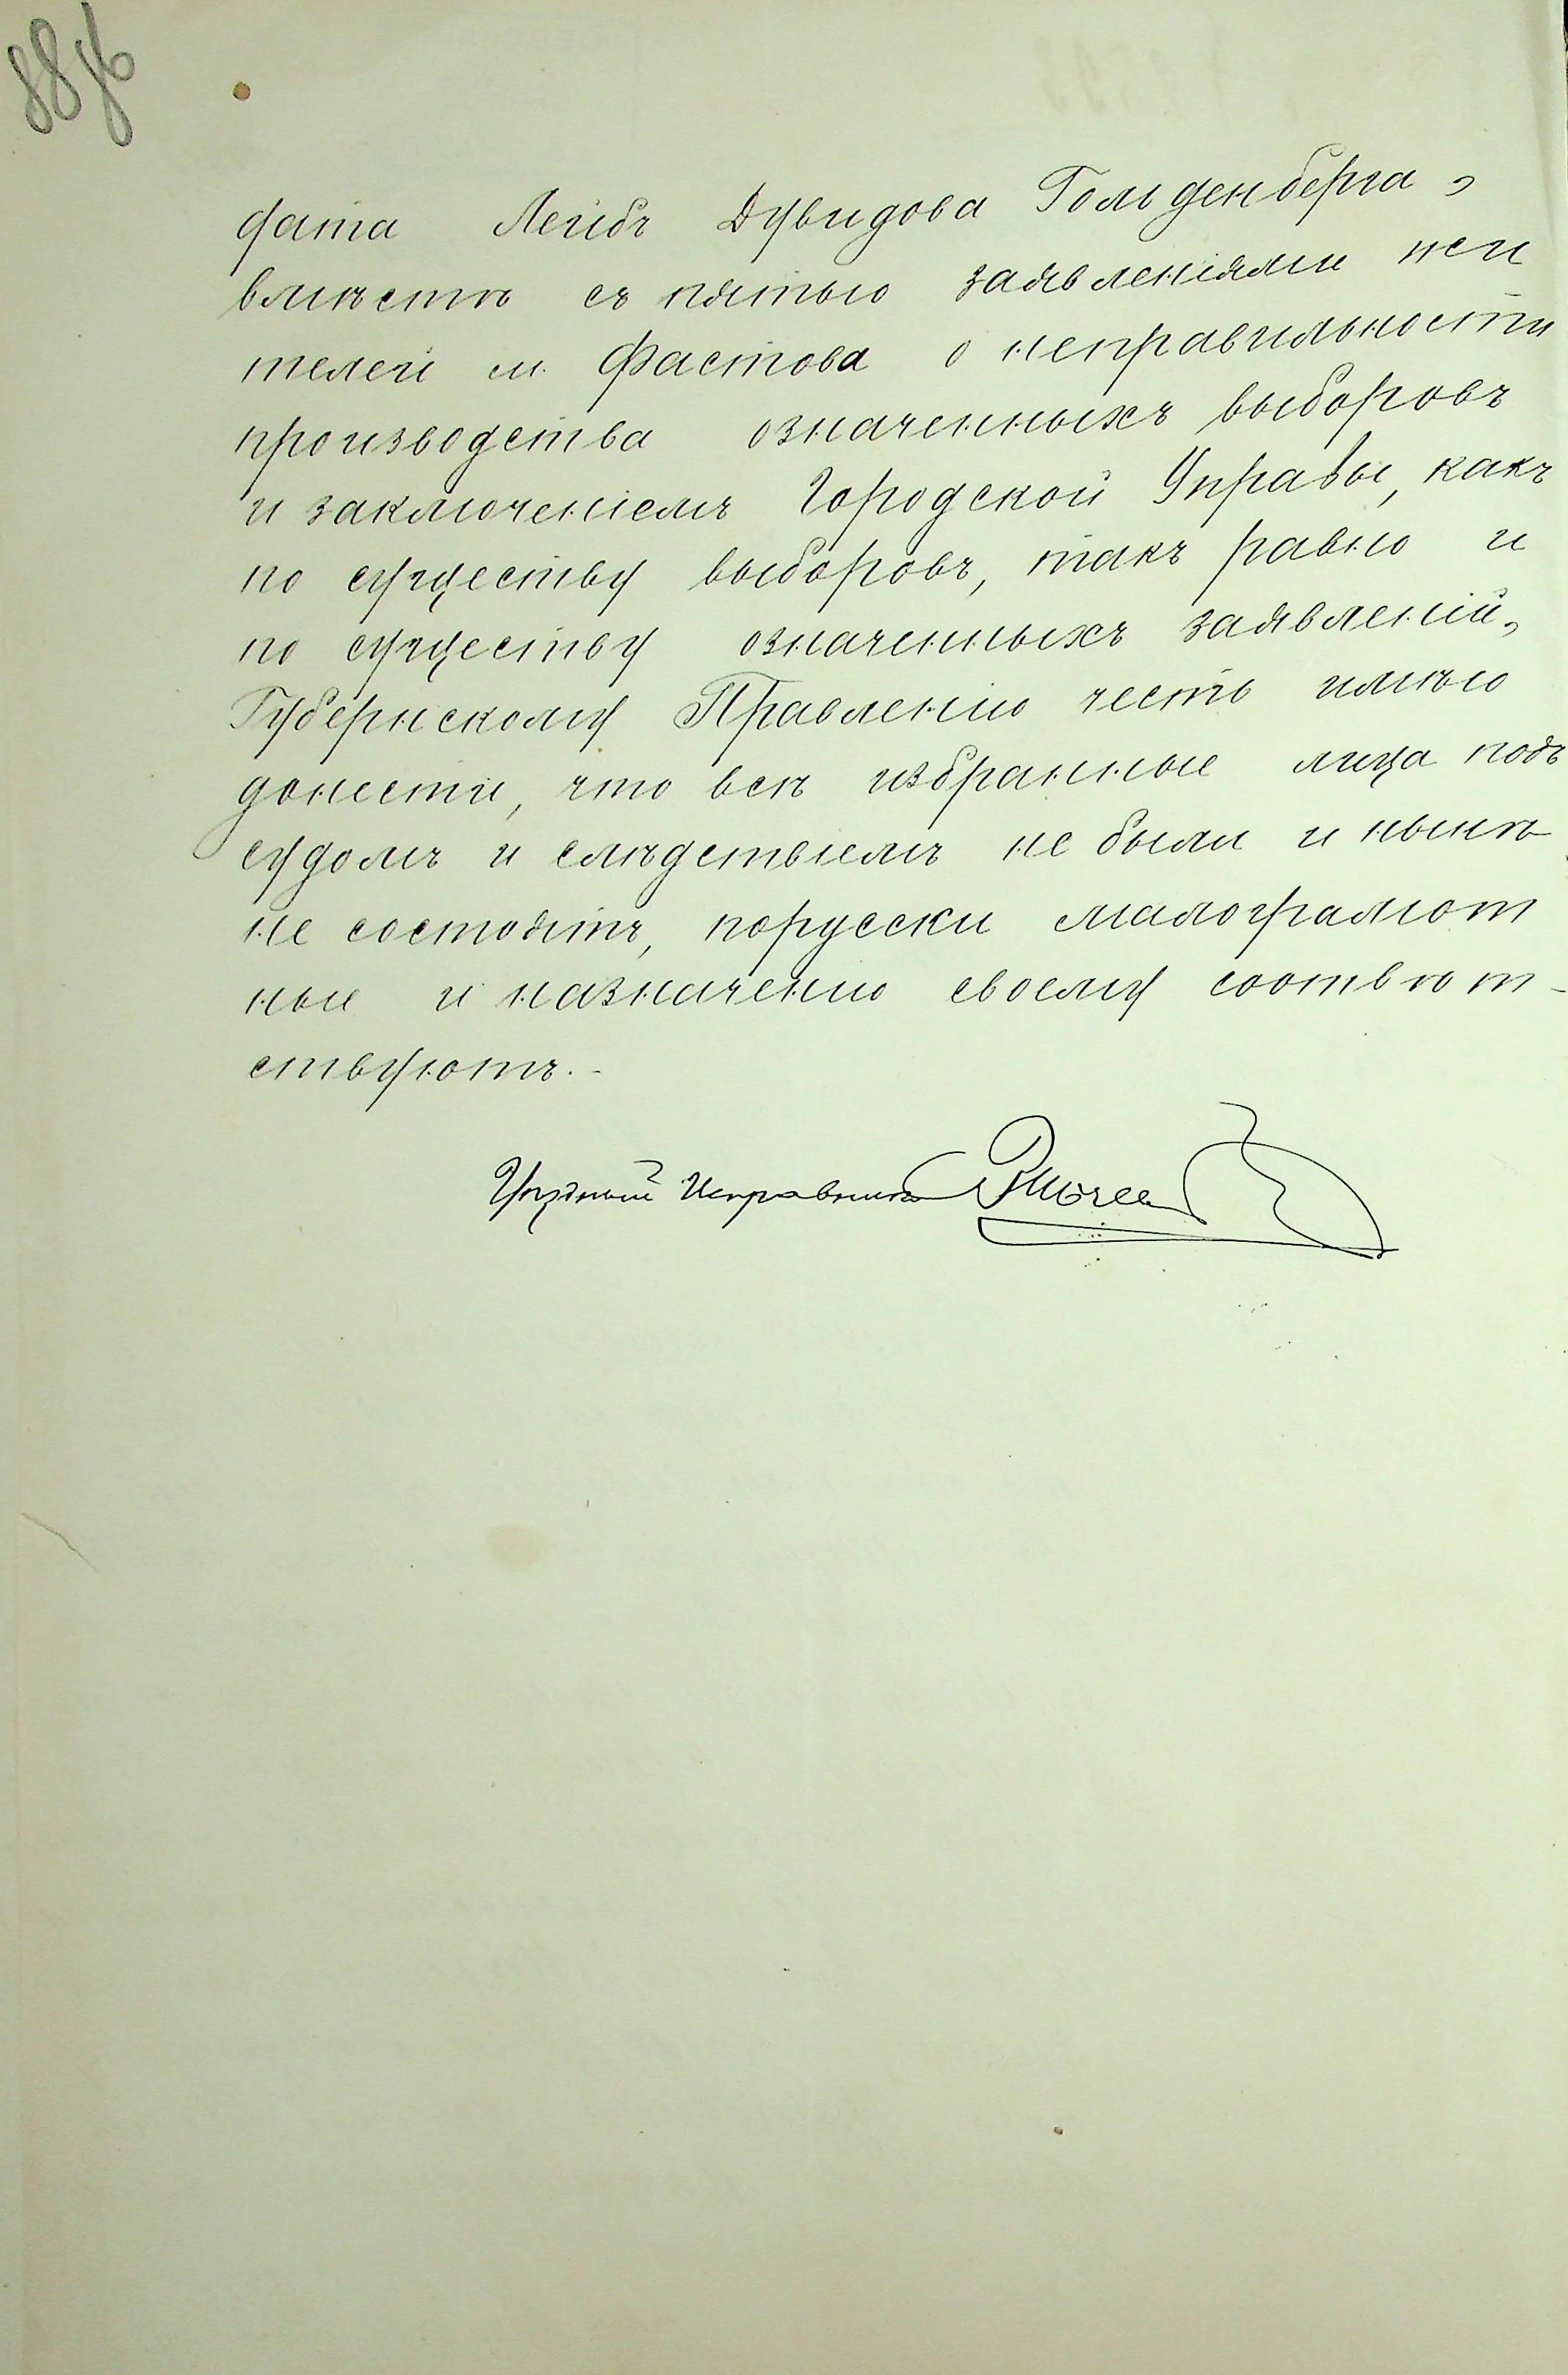 88 об
дата Лейбъ Дувидова Гольденберга,
вмѣстѣ съ пятью заявленіями жи
телей м. Фастова о неправильности
производства означенныхъ выборовъ
и заключеніемъ Городской Управы, какъ
по существу выборовъ, такъ равно и
по существу означенныхъ заявленій,
Губернскому Правленію честь имѣю
донести, что всѣ избранные лица подъ
судомъ и слѣдствіемъ не были и нынѣ
не состоятъ, порусски малограмот
ные и назначенію своему соотвѣт-
ствуютъ.-
Уѣздный Исправникъ